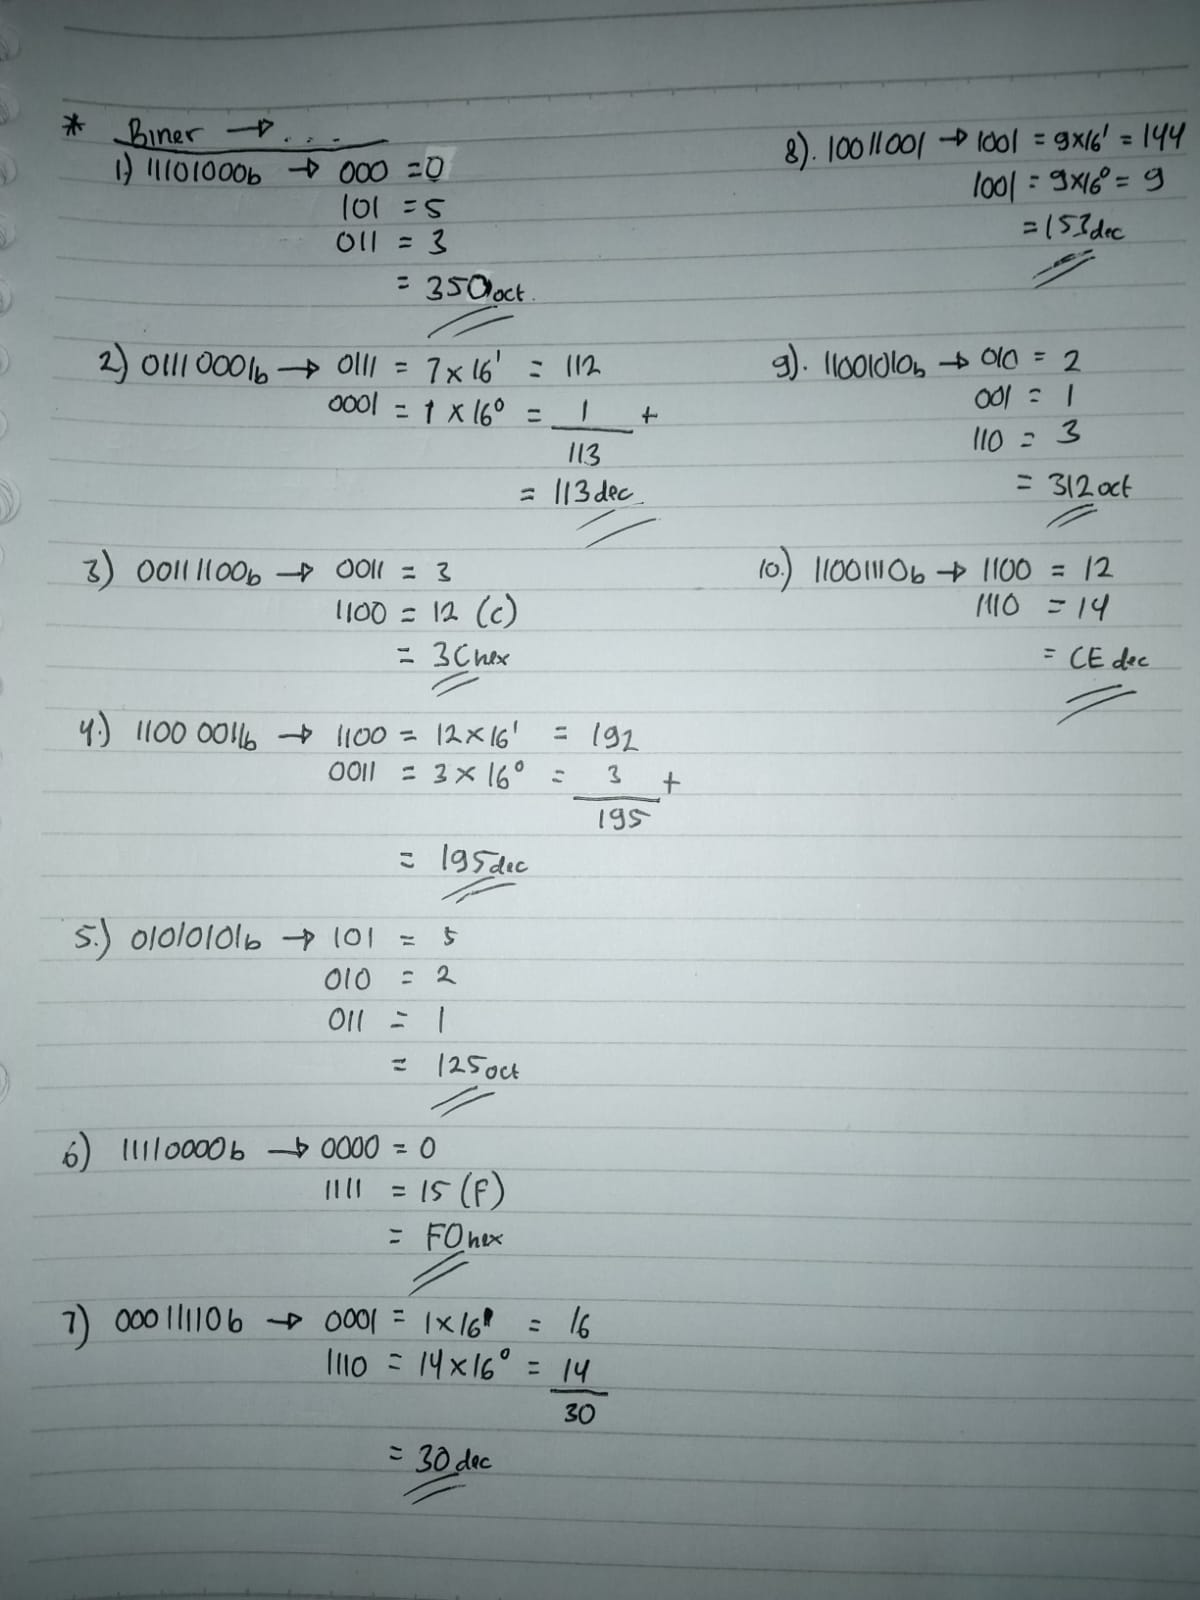 * Biner → ....
1.) 11101000b → 000 = 0
101 = 5
011 = 3
= 350oct.
2) 01110001b → 0111 = 7 x 16¹ = 112
0001 = 1 x 16⁰ = 1 +
113
= 113 dec
3) 00111100b → 0011 = 3
1100 = 12 (C)
= 3C hex
4.) 1100 0011b → 1100 = 12 x 16¹ = 192
0011 = 3 x 16⁰ = 3 +
195
= 195dec
5.) 01010101b → 101 = 5
010 = 2
011 = 1
= 125 oct
6) 11110000b → 0000 = 0
1111 = 15 (F)
= F0 hex
7) 00011110b → 0001 = 1x16¹ = 16
1110 = 14x16⁰ = 14
30
= 30 dec
8). 10011001 → 1001 = 9x16¹ = 144
1001 = 9x16⁰ = 9
= 153dec
9). 11001010b → 010 = 2
001 = 1
110 = 3
= 312 oct
10.) 11001110b → 1100 = 12
1110 = 14
= CE dec